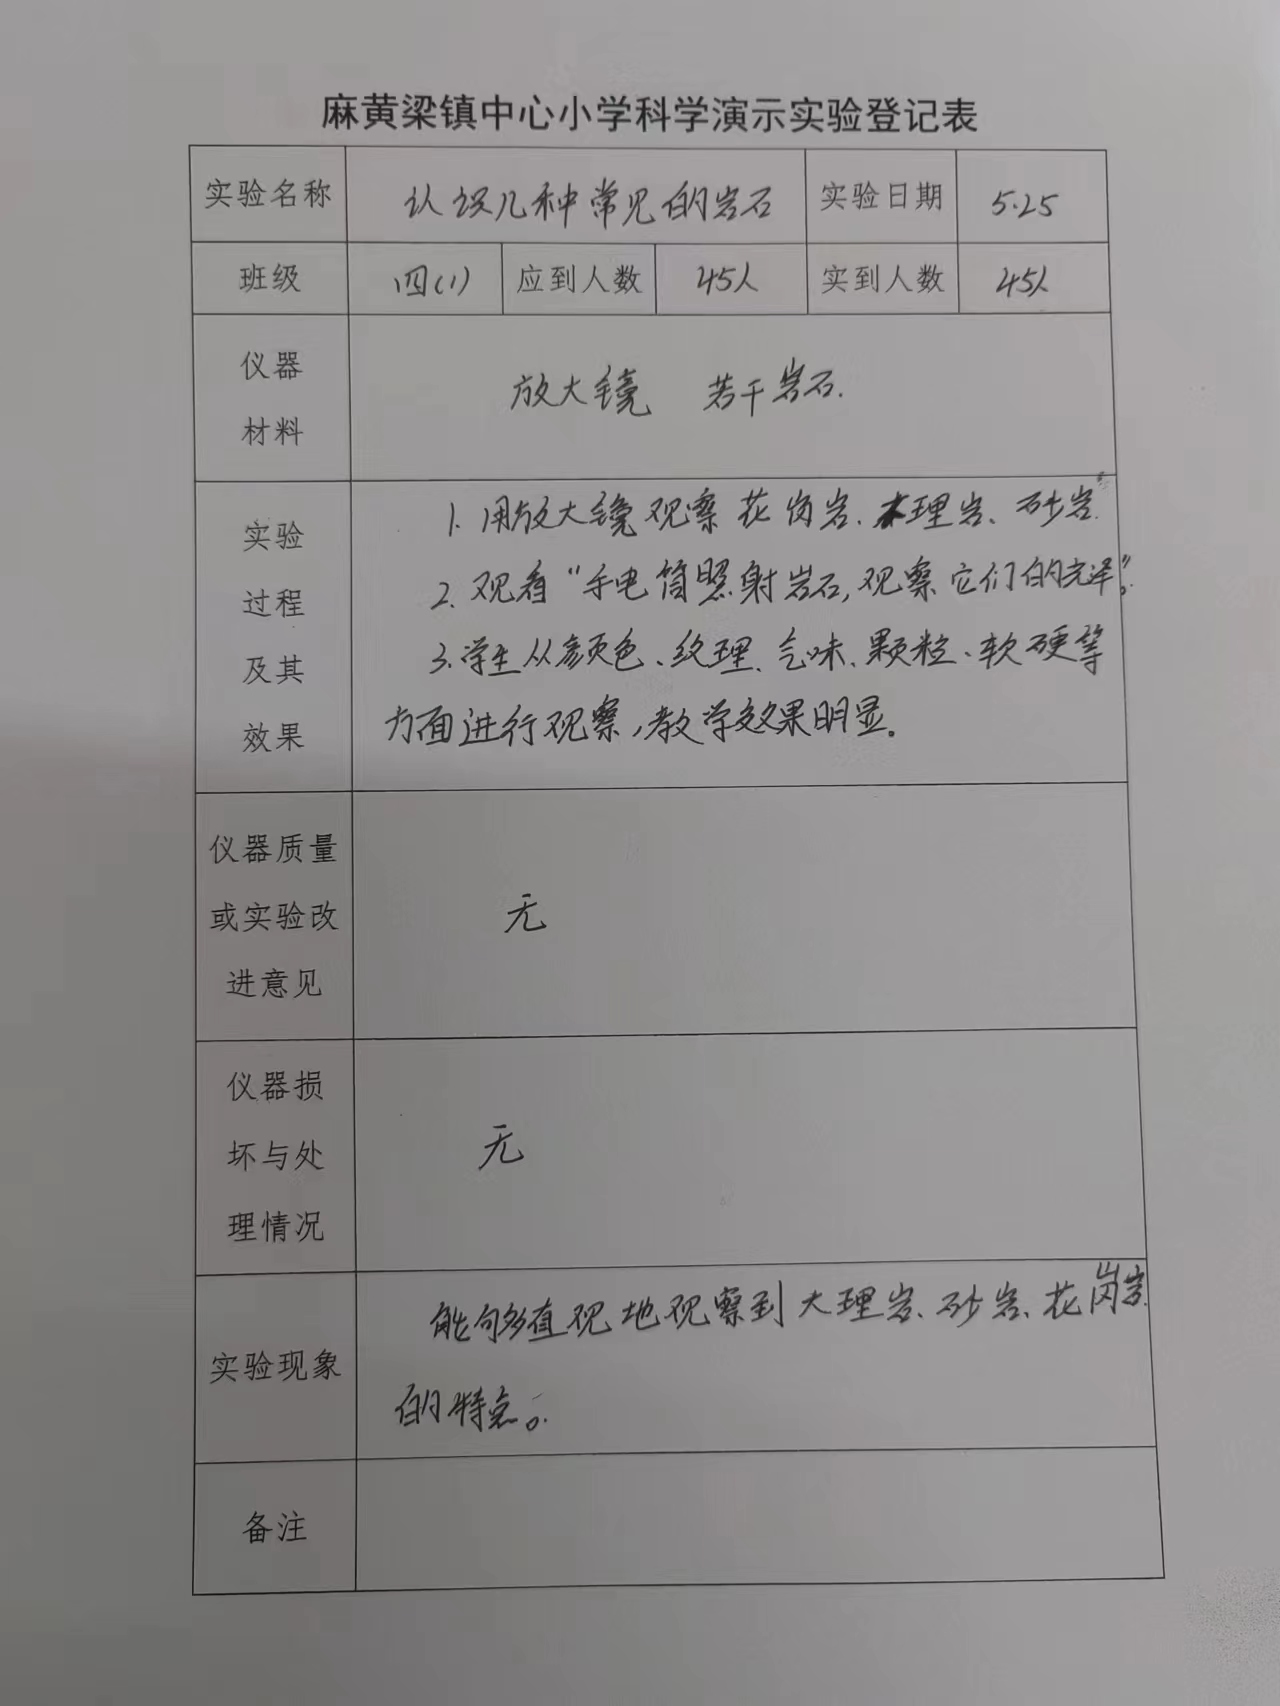 麻黄梁镇中心小学科学演示实验登记表
实验名称 认识几种常见的岩石 实验日期 5.25
班级 四(1) 应到人数 45人 实到人数 45人
仪器
材料
放大镜 若干岩石.
实验
过程
及其
效果
1. 用放大镜观察花岗岩、大理岩、砂岩.
2. 观看“手电筒照射岩石,观察它们的光泽”。
3.学生从颜色、纹理、气味、颗粒、软硬等
方面进行观察,教学效果明显。
仪器质量
或实验改
进意见
无
仪器损
坏与处
理情况
无
实验现象
能够直观地观察到大理岩、砂岩、花岗岩
的特点。
备注